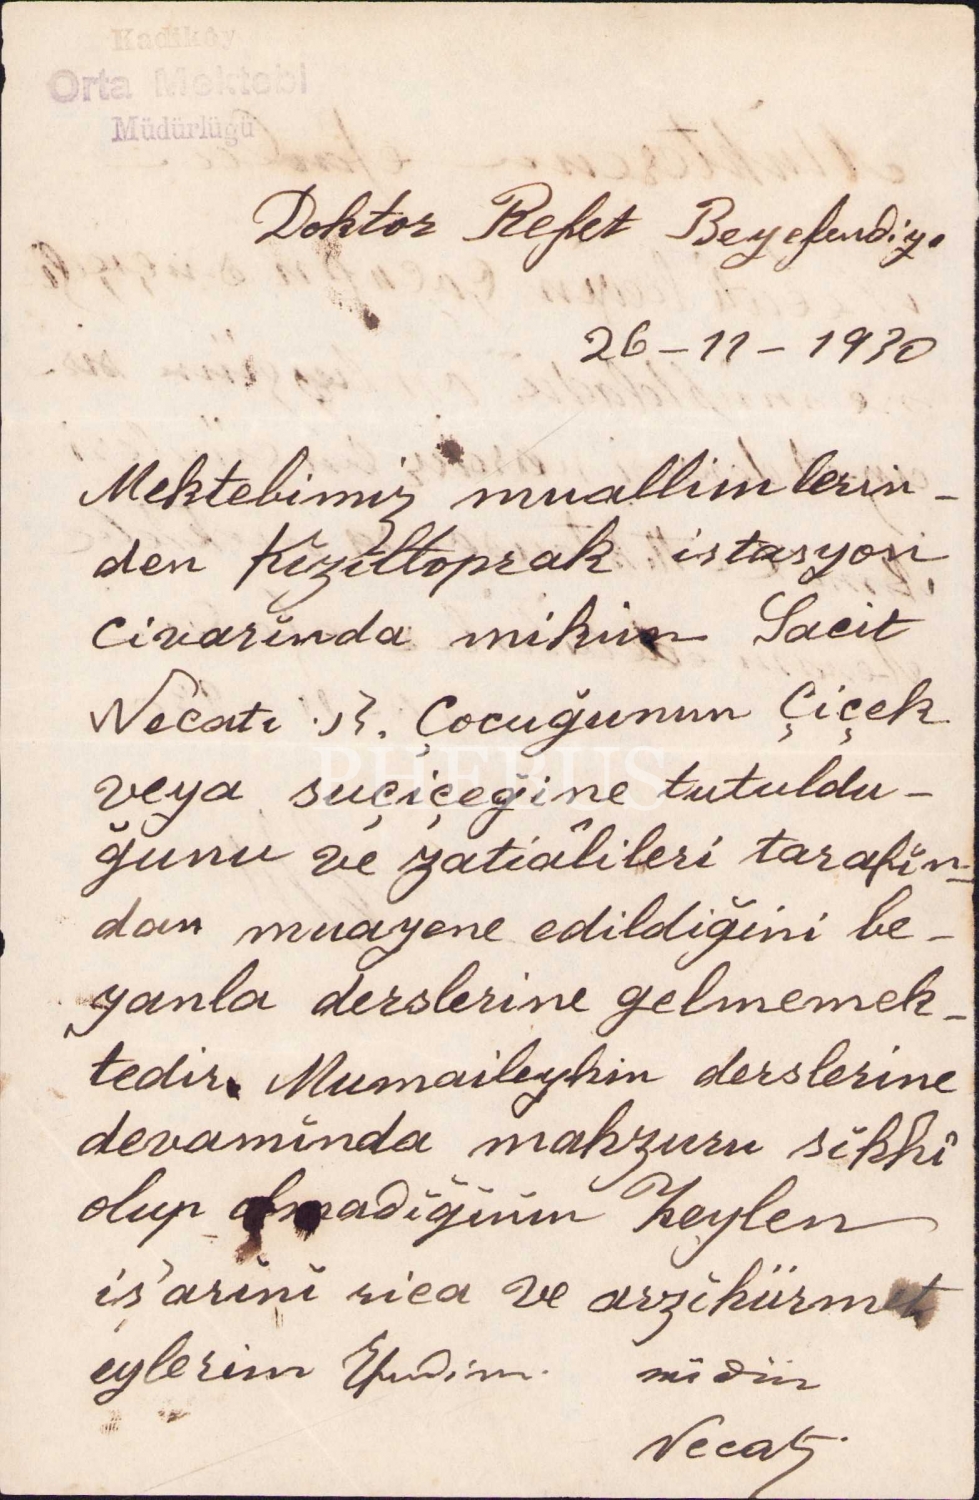 Kadıköy
Orta Mektebi
Müdürlüğü
Doktor Refet Beyefendiye
26-11-1930
Mektebimiz muallimlerin-
den Kızıltoprak istasyon
civarında mikim Sacit
Necati B. Çocuğunun Çiçek
veya suçiçeğine tutuldu-
ğunu ve zatiâlileri tarafın-
dan muayene edildiğini be-
yanla derslerine gelmemek-
tedir. Mumaileyhin derslerine
devamında mahzuru sıhhî
olup olmadığının Zeylen
iş'arını rica ve arzıhürmet
eylerim Efndim. müdür
Necati
PHEBUS